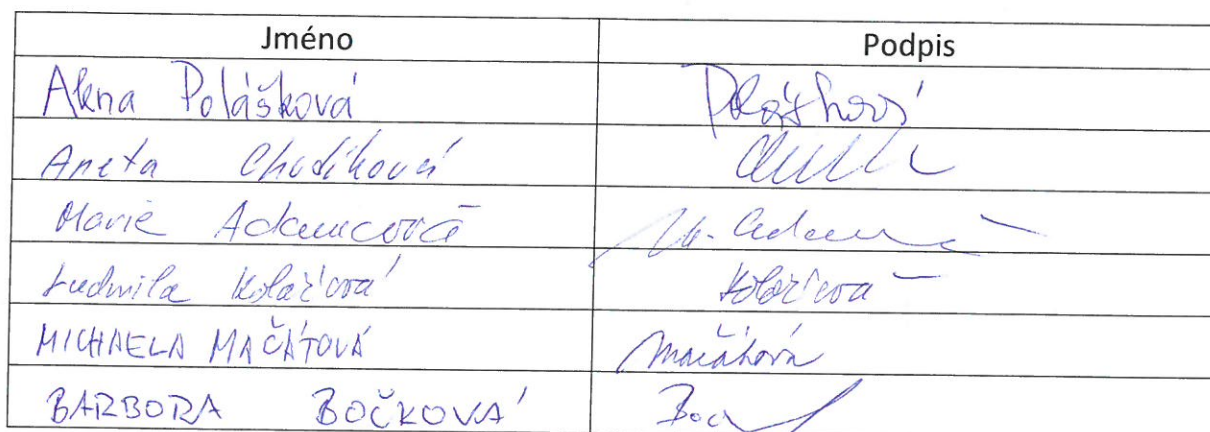 Jméno Podpis
Alena Polášková Polášková
Aneta Chudíková
Marie Adamcová M. Adam
Ludmila Kolářová Kolářová
MICHAELA MAČÁTOVÁ Mačátová
BARBORA BOČKOVÁ Boč